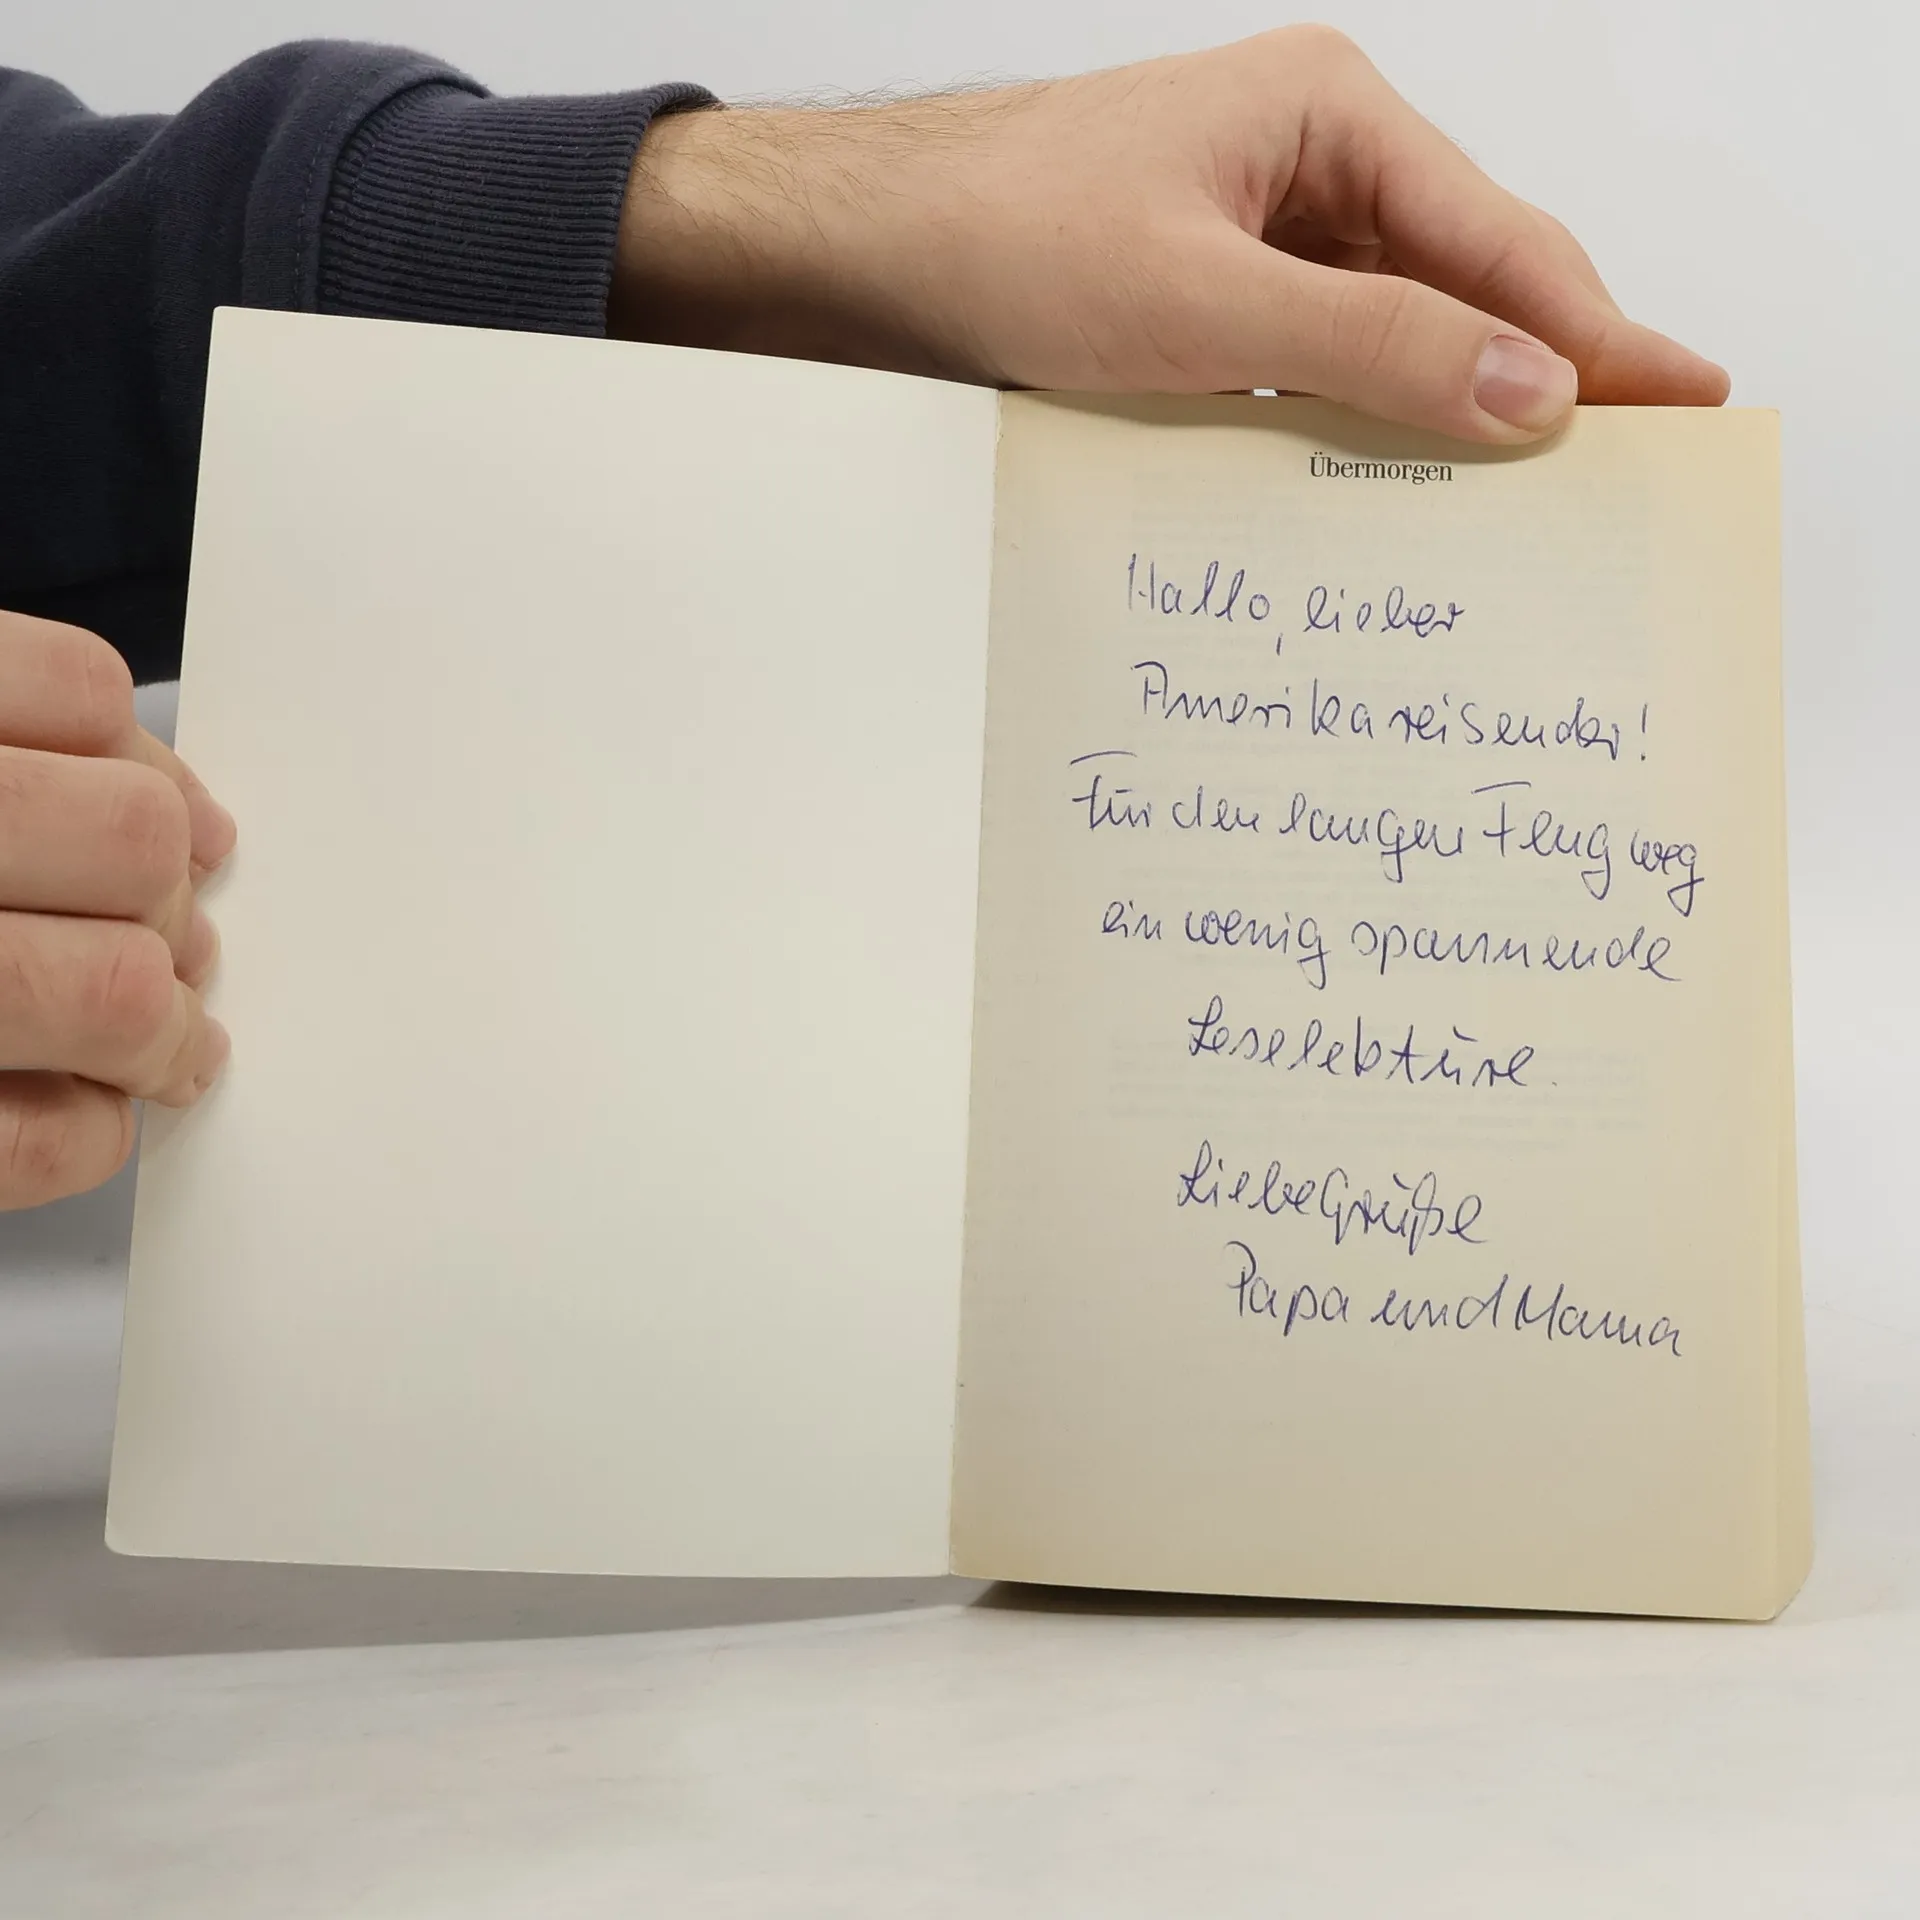 Übermorgen
Hallo, lieber
Amerikareisender!
Für den langen Flugweg
ein wenig spannende
Leselektüre.
Liebe Grüße
Papa und Mama